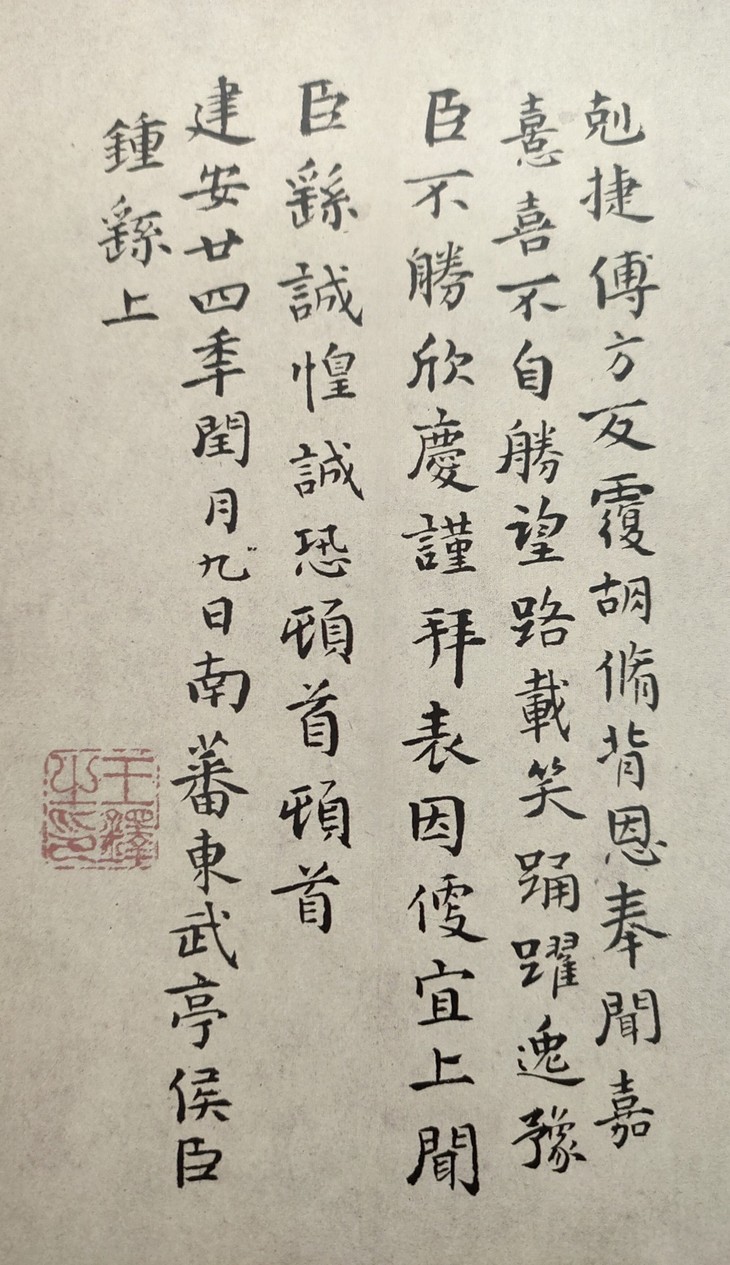 剋捷傅方反覆胡脩背恩奉聞嘉
憙喜不自勝望路載笑踊躍逸豫
臣不勝欣慶謹拜表因便宜上聞
臣繇誠惶誠恐頓首頓首
建安廿四季閏月九日南蕃東武亭侯臣
鍾繇上
王鐸之印